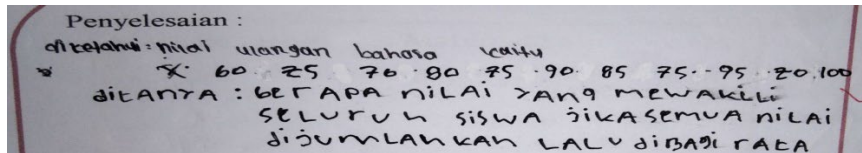 Penyelesaian :
diketahui : nilai ulangan bahasa yaitu
60 75 70 80 75 90 85 75 95 70 100
ditAnyA : berApA niLAi yAng mewAkiLi
seLuruh siswA jikA semuA niLAi
dijumLAhkAn LALu dibAgi rAtA